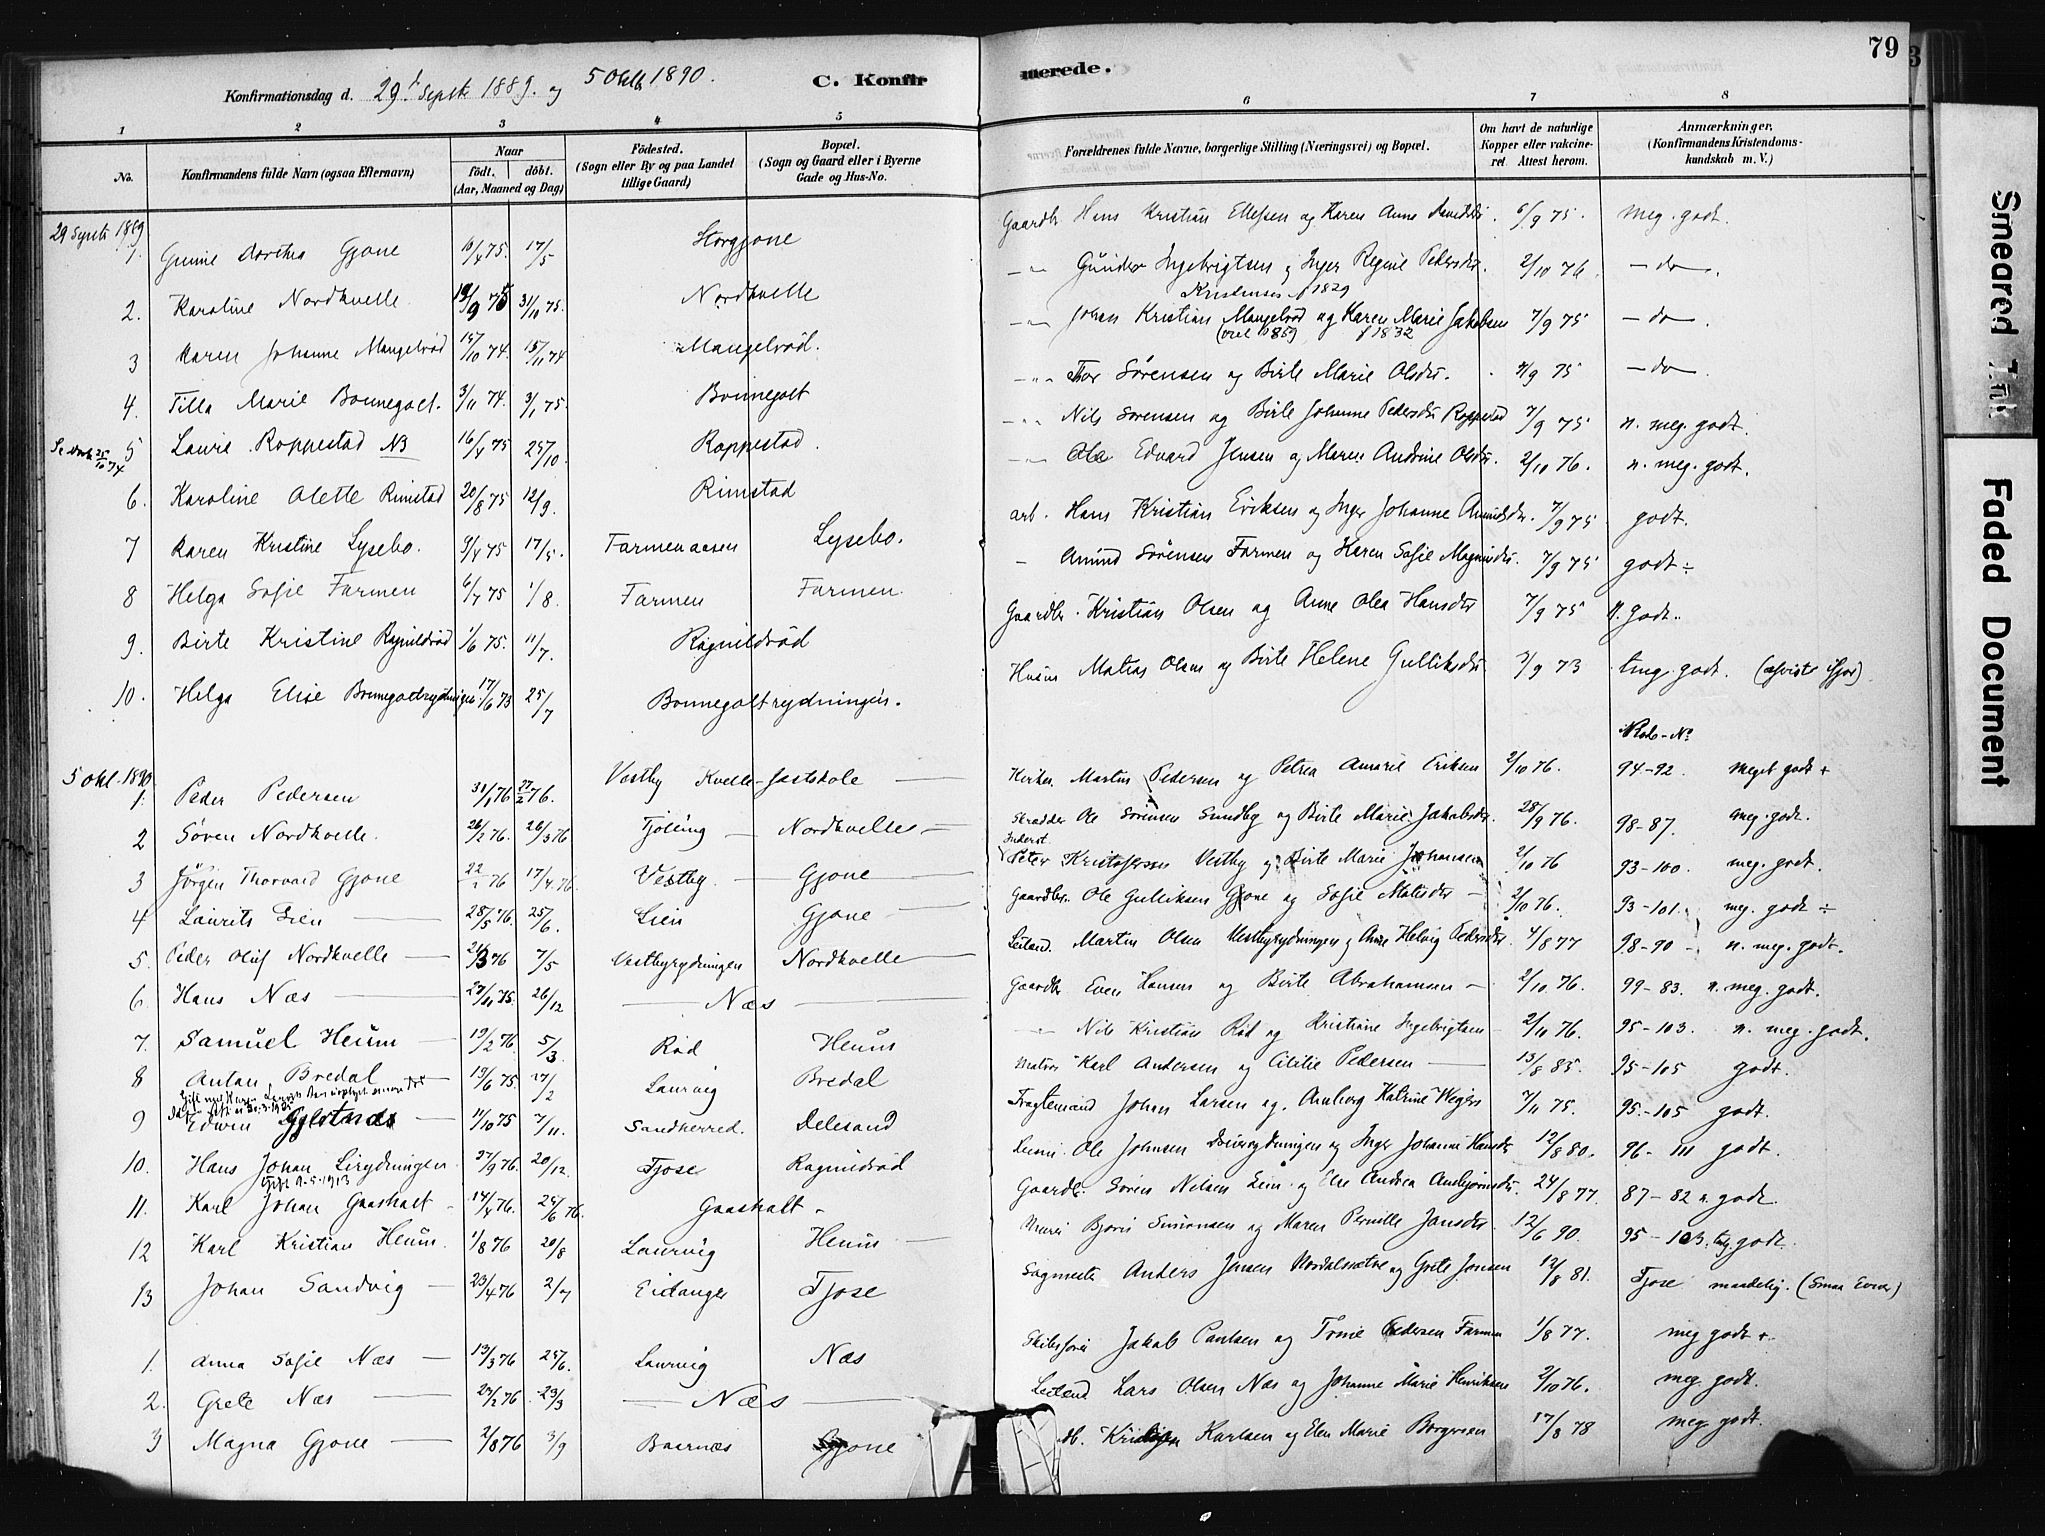 79
Konfirmationsdag d. 29de Septr 1889. og 5 Oktb 1890. C. Konfirmerede.
1 2 3 4 5 6 7 8
No. Konfirmandens fulde Navn (ogsaa Efternavn) Naar födt. döbt. (Aar, Maaned og Dag) Födested. (Sogn eller By og paa Landet tillige Gaard) Bopæl. (Sogn og Gaard eller i Byerne Gade og Hus-No. Forældrenes fulde Navne, borgerlige Stilling (Næringsvei) og Bopæl. Om havt de naturlige Kopper eller vaccineret. Attest herom. Anmærkninger. (Konfirmandens Kristendomskundskab m. V.)
29 Septr 1889
1. Gunne Dorthea Gjone 10/4 75. 17/5 Storgjone Gaardbr Hans Kristian Ellefsen og Karen Anne 6/9 75. meg. godt.
2. Karoline Nordkvelle 19/9 75 31/10 75. Nordkvelle Gunder Ingebrigtsen og Inger Regine Pedersdtr. 2/10 76. do.
3 Karen Johanne Mangelröd 15/10 74. 15/11 74 Mangelröd. Johan Kristian Mangelröd og Karen Marie Jakobsen 7/9 75 do.
Kristensen f 1829 f 1832
4. Tilla Marie Bonnegolt. 3/11 74. 3/1 75. Bonnegolt Thor Sörensen og Birte Marie Olsdtr. 7/9 75 do.
5 Laurie Roppestad NB 16/4 75 25/10. Roppestad. Nils Sörensen og Birte Johanne Pedersdtr Roppestad 7/9 75 n. meg. godt.
6. Karoline Olette Rimstad 20/8 75 12/9. Rimstad Ole Edvard Jensen og Maren Andrine Olsdtr. 2/10 76. n. meg. godt.
7 Karen Kristine Lysebo. 9/4 75 17/5. Farmenaasen Lysebo. arb. Hans Kristian Eriksen og Inger Johanne 7/9 75 godt.
8 Helga Sofie Farmen 6/7 75 1/8. Farmen Farmen. Amund Sörensen Farmen og Karen Sofie Magnusdtr. 7/9 75 godt ÷
9. Birte Kristine Ragnildröd 1/6 75. 11/7. Ragnildröd Gaardbr. Kristian Olsen og Anne Olea Hansdtr 7/9 75 n. godt.
10. Helga Elise Bonnegoltrydningen 17/6 73 25/7 Bonnegoltrydningen. Husm Matias Olsen og Birte Helene Gulliksdtr 7/9 73 tmg. godt.
5 Okt. 1890
1. Peder Pedersen 30/1 76 27/2 76. Vestby Kvelle-fastskole Kirkes. Martin Pedersen og Petrea Amarie Eriksen 2/10 76. 94-92. meget godt +
2 Sören Nordkvelle. 26/2 76. 26/3 76 Tjölling Nordkvelle Skrædder Ole Sörensen Sundby og Birte Marie Jakobsdtr. 28/9 76. 98-87. meg. godt.
3 Jörgen Thorvald Gjone 22/ 76 17/4 76. Vestby. Gjone Inderst Peter Kristofersen Vestby og Birte Marie Johansen 2/10 76 93-100. meg. godt.
4 Laurits Lien 28/5 76. 25/6. Lien Gjone Gaardbr. Ole Gulliksen Gjone og Sofie Matisdtr 2/10 76. 93-101. meg. godt ÷
5. Peder Oluf Nordkvelle 21/3 76 7/5 Vestbyrydningen Nordkvelle Leilænd. Martin Olsen Vestbyrydningen og Anne Helvig Pedersdtr 4/8 77 98-90 - n. meg. godt.
6. Hans Næs 27/11 75. 26/12 Næs Gaardbr Even Hansen og Birte Abrahamsen 2/10 76. 99-83. n. meg. godt.
7. Samuel Heum 19/2 76. 5/3. Röd Heum Nils Kristian Röd og Kristiane Ingebrigtsen 2/10 76. 95-103. n. meg. godt.
8 Antan Bredal 19/6 75. 27/2 Laurvig Bredal Matros Karl Andersen og Cicilie Pedersen 13/8 85. 95-105 godt.
9 Edwin 11/10 75 7/11. Sandherred. Delesand Fragtemand Johan Larsen og Amborg Katrine Weger 7/11 75. 95-105 godt.
10. Hans Johan Lirydningen 27/9 76. 20/12. Tjose Ragnildröd Husm. Ole Johnsen og Inger Johanne Hansdtr 12/8 80. 96-111 godt.
Gift 9-5-1913
11. Karl Johan Gaasholt 14/4 76. 25/6 76. Gaasholt Gaardbr. Sören Nilsen Lien og Else Andrea 24/8 77. 87-82 n. godt
12 Karl Kristian Heum. 1/8 76 20/8 Laurvig Heum Murer Björn Simonsen og Maren Pernille Jansdtr. 12/6 90. 95-103. tmg. godt.
13 Johan Sandvig 23/4 76 2/7 Eidanger Tjose Sagmester Anders Jensen og Grete Jonsen 12/8 81. Tjose maadelig. (Smaa Evner)
1. Anna Sofie Næs 13/3 76 25/6. Laurvig Næs Skibsförer Jakob Paulsen og Trine Pedersen Farmen 1/8 77. meg godt +
2. Grete Næs 27/2 76 23/3 Næs Leilænd Lars Olsen Næs og Johanne Marie Henriksen 2/10 76. meg. godt.
3 Magna Gjone 2/8 76 3/9 Baarnæs Gjone Karlsen og Elen Marie Borgersen 17/8 78 meg. godt.
Smeared Ink
Faded Document